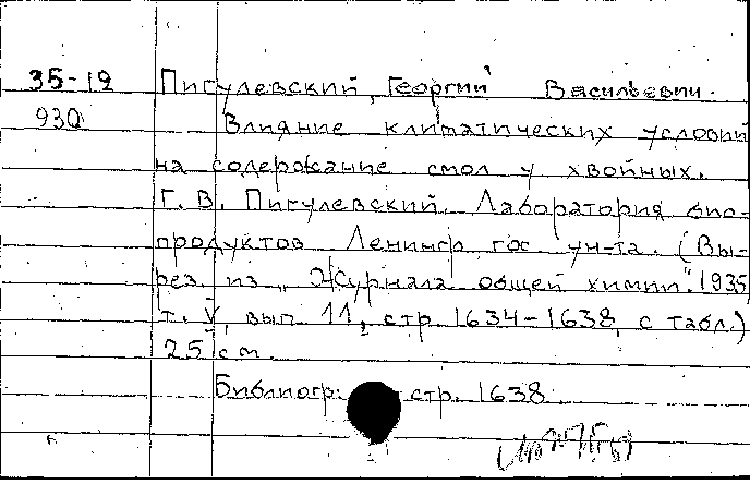 35-19 Пигулевский, Георгий Васильевич.
930 Влияние климатических условий
на содержание смол у хвойных.
Г. В. Пигулевский. Лаборатория био-
продуктов Ленингр. гос ун-та. (Вы-
рез. из „Журнала общей химии". 1935
т. V, вып. 11, стр. 1634-1638, с табл.)
25 см.
Библиогр: стр. 1638